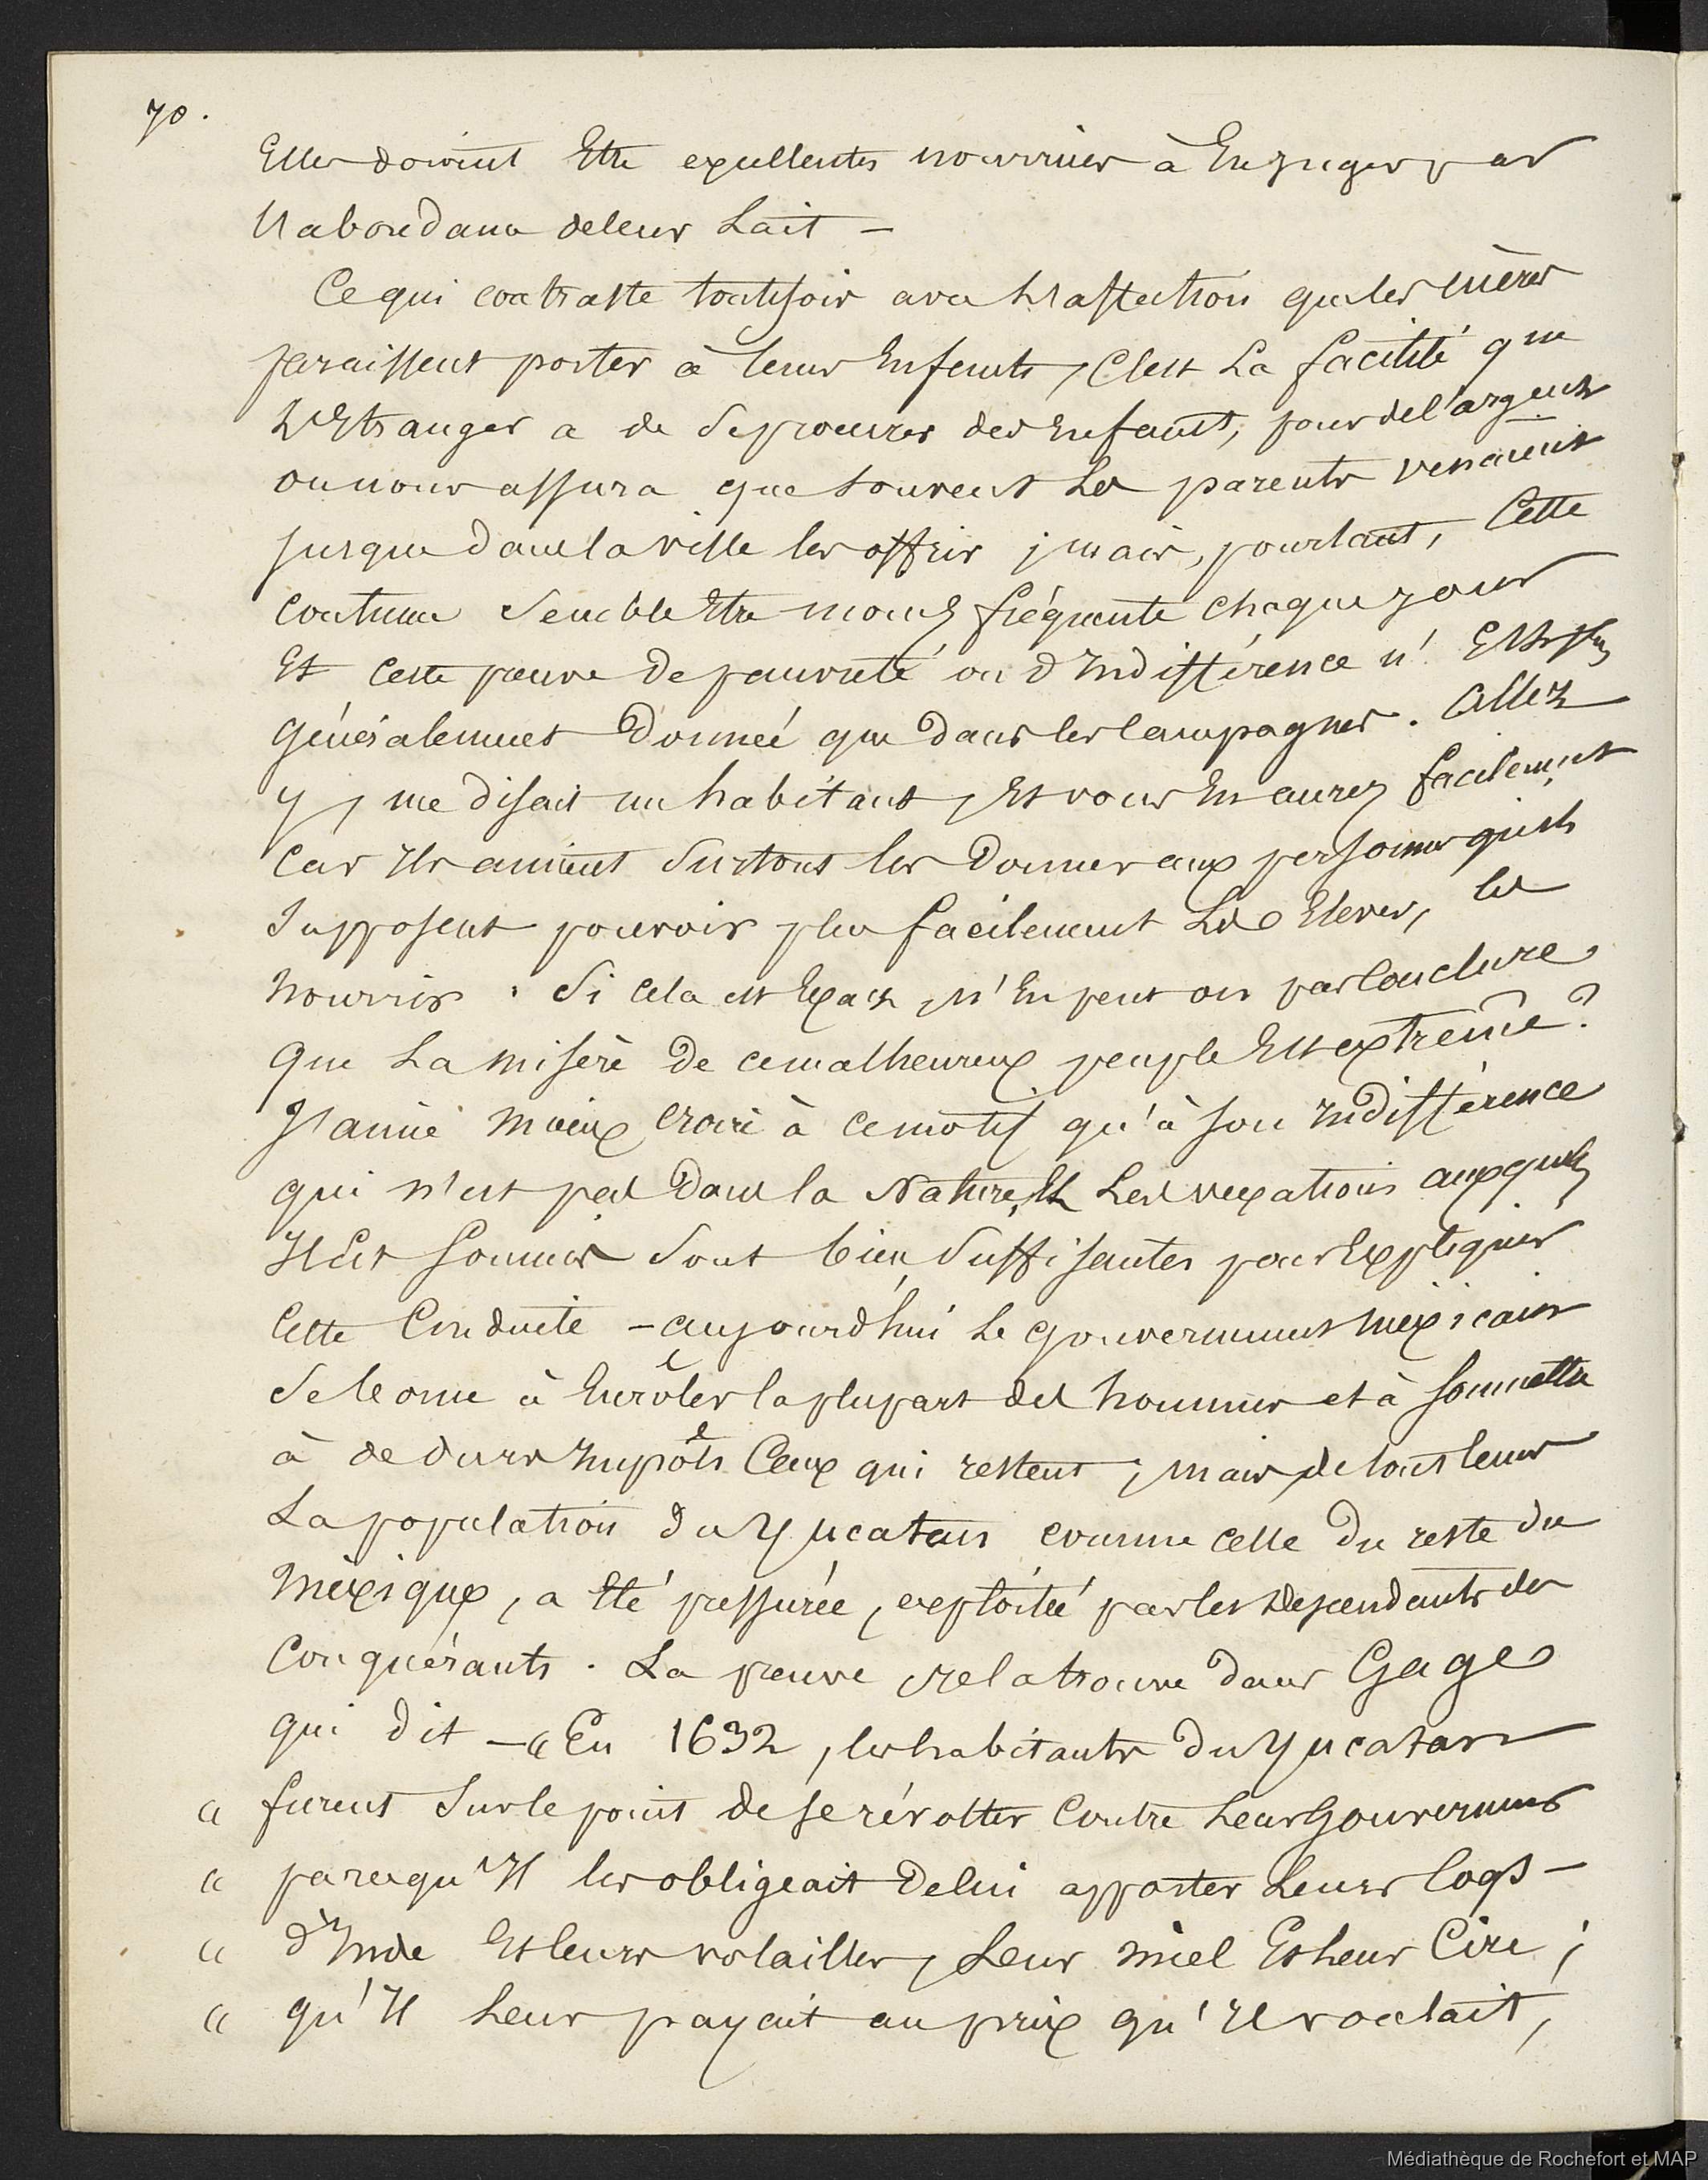 70.
Elles doivent Etre excellentes nourrices à En juger par
L'abondance de leur Lait –
Ce qui contraste toutefois avec L'affection que les mères
paraissent porter à leurs Enfants, C'est La facilité que
L'Etranger a de Se procurer des Enfants, pour de l'argent
on nous assura que souvent Les parents venaient
jusque dans la ville les offrir ; mais, pourtant, Cette
coutume Semble Etre moins fréquente chaque jour
Et cette preuve de pauvreté ou d'Indifférence n'Est plus
généralement Donnée que dans les campagnes. Allez
y, me disait un habitant, Et vous En aurez facilement
Car Ils aiment Surtout les Donner aux personnes qu'ils
Supposent pouvoir plus facilement Les Elever, les
nourrir. Si cela est Exact, N'En peut on pas conclure
que La misère de ce malheureux peuple Est extrême ?
J'aime mieux croire à ce motif qu'à son Indifférence
qui n'est pas Dans la Nature, Et Les vexations auxquelles
Il Est Soumis Sont bien Suffisantes pour Expliquer
Cette Conduite – aujourd'hui Le gouvernement mexicain
Se borne à Enrôler la plupart des hommes et à soumettre
à de durs Impôts Ceux qui restent ; mais, de tous temps
La population du Yucatan comme celle du reste du
Mexique, a Eté pressurée, exploitée par les descendants des
Conquérants. La preuve se la trouve dans Gage
qui dit – « En 1632, les habitants du Yucatan
« furent Sur le point de se révolter Contre Leur Gouverneur
« parce qu'Il les obligeait De lui apporter Leurs Coqs –
« d'Inde Et leurs volailles, Leur miel Et Leur Cire ;
« qu'Il Leur payait au prix qu'Il voulait,
Médiathèque de Rochefort et MAP